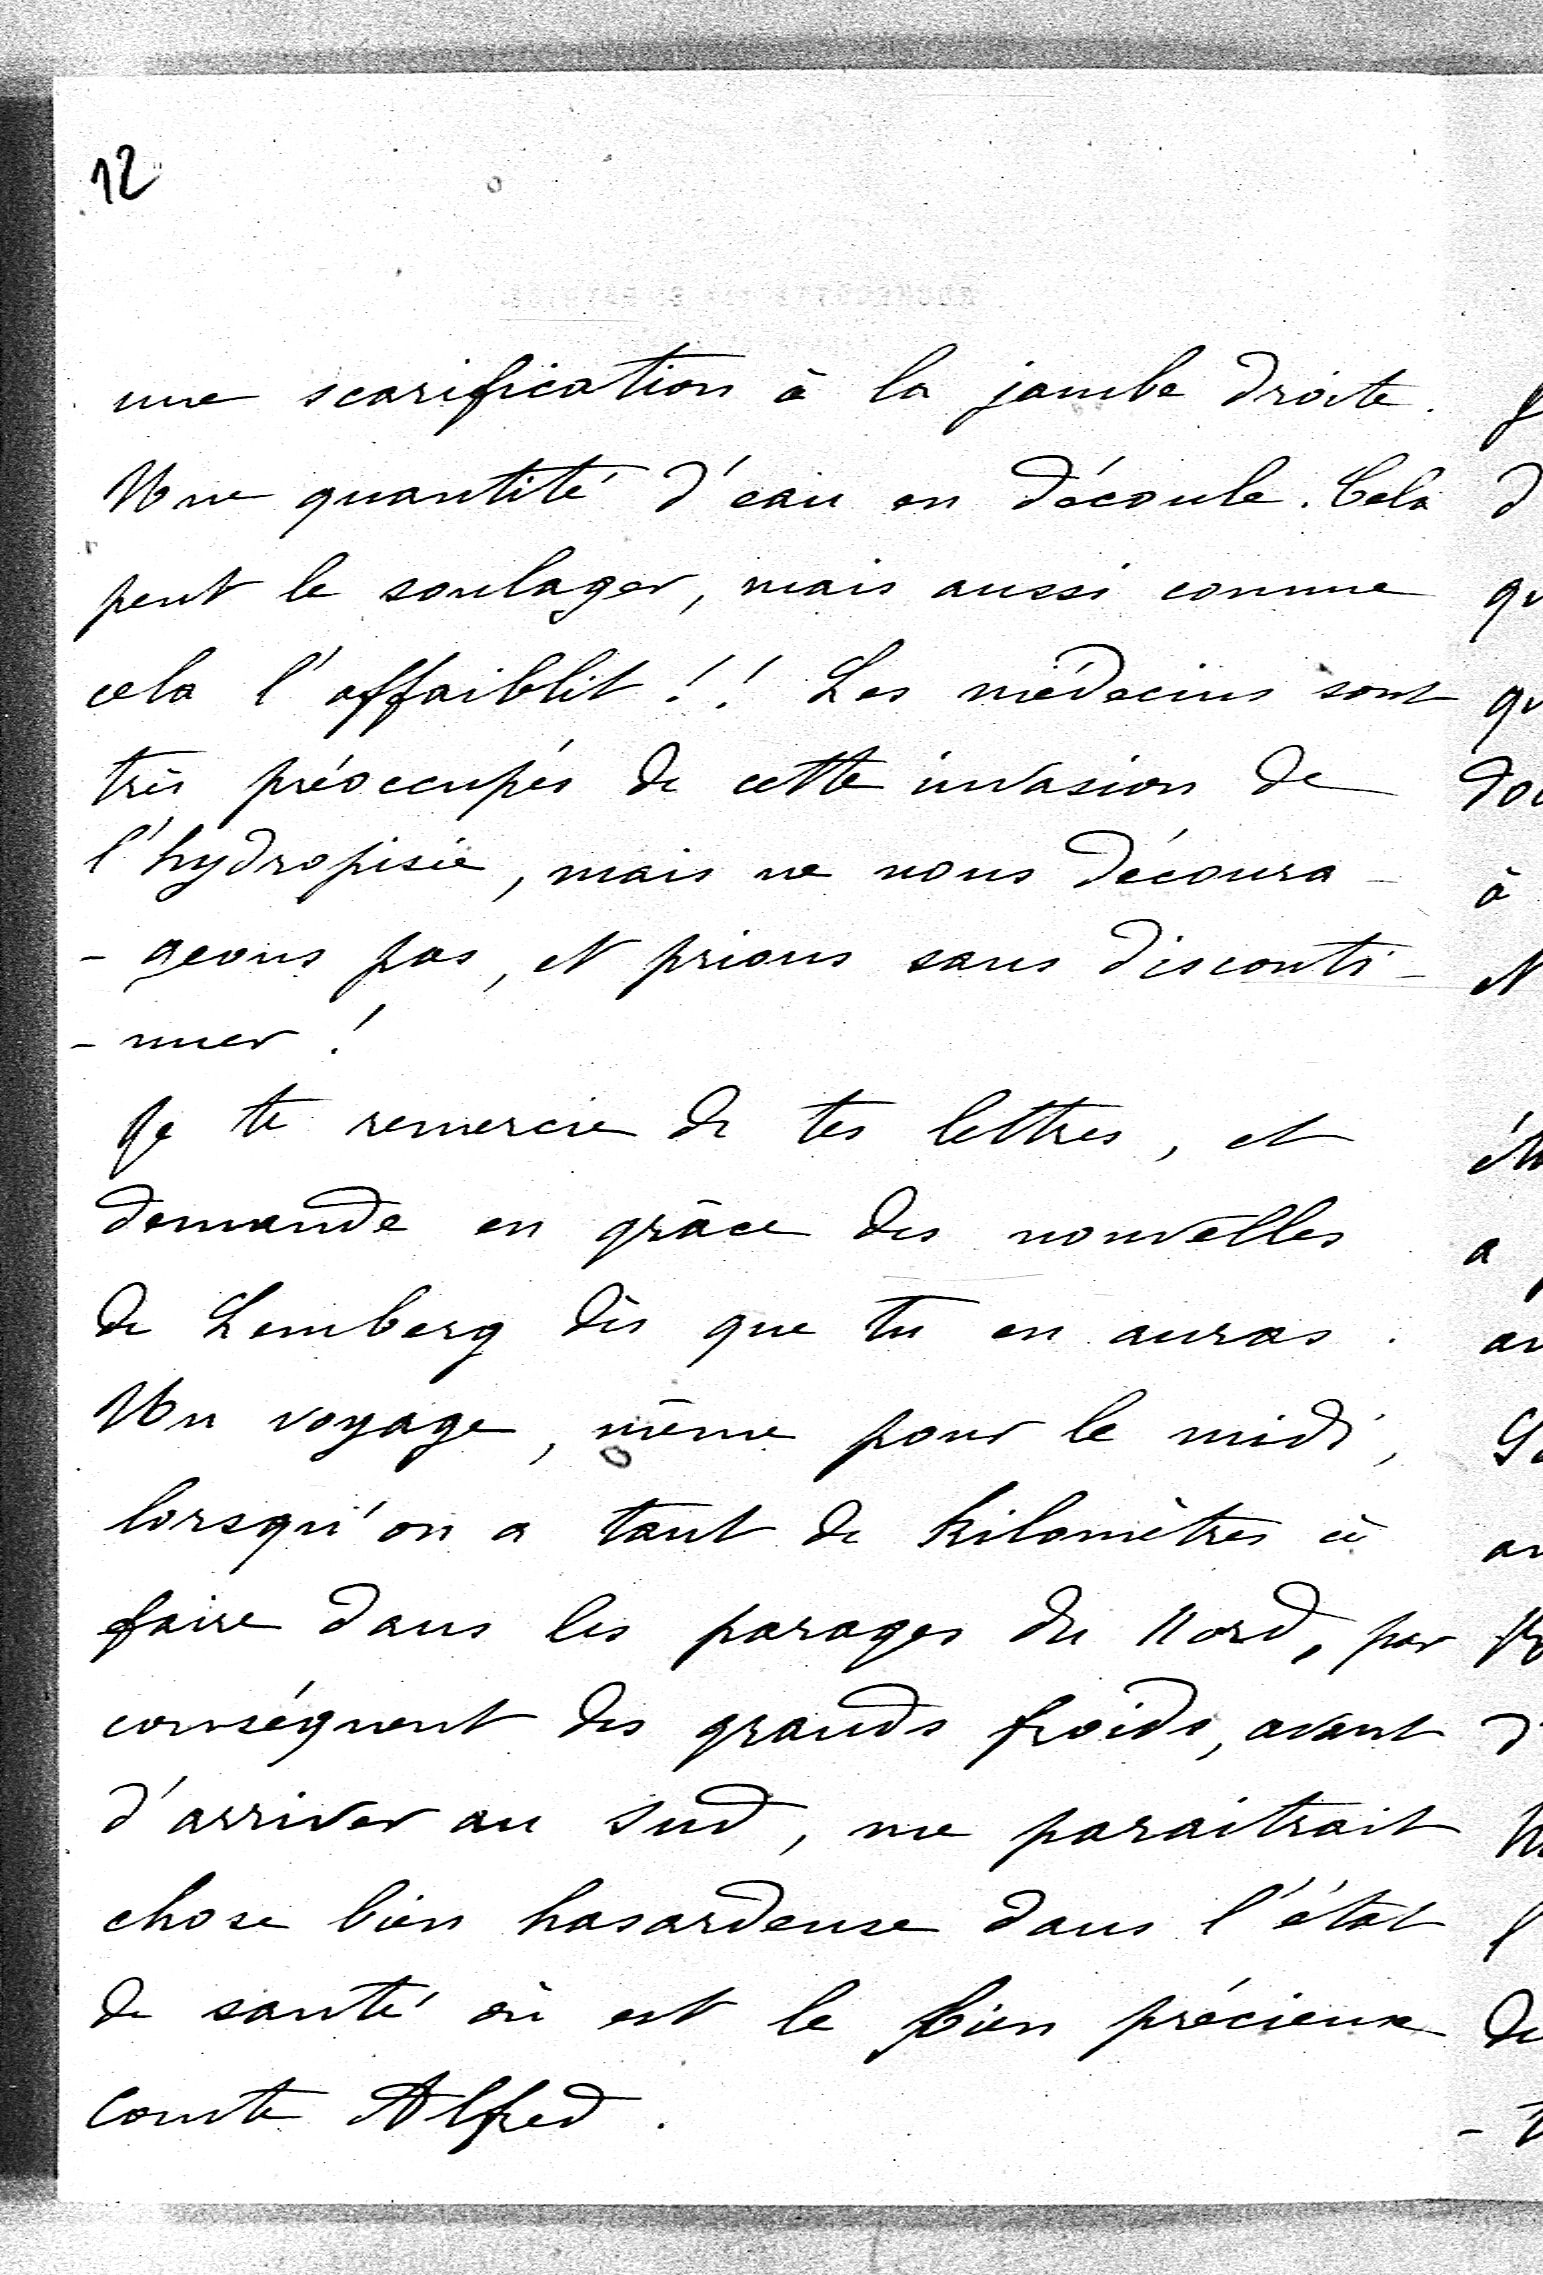 12
une scarification à la jambe droite.
Une quantité d'eau en découle. Cela
peut le soulager, mais aussi comme
cela l'affaiblit !! Les médecins sont
très préoccupés de cette invasion de
l'hydropisie, mais ne nous découra-
- geons pas, et prions sans disconti-
- nuer !
Je te remercie de tes lettres, et
demande en grâce des nouvelles
de Lemberg dès que tu en auras.
Un voyage, même pour le midi,
lorsqu'on a tant de kilomètres à
faire dans les parages du Nord, par
conséquent des grands froids, avant
d'arriver au sud, me paraîtrait
chose bien hasardeuse dans l'état
de santé où est le bien précieux
comte Alfred.